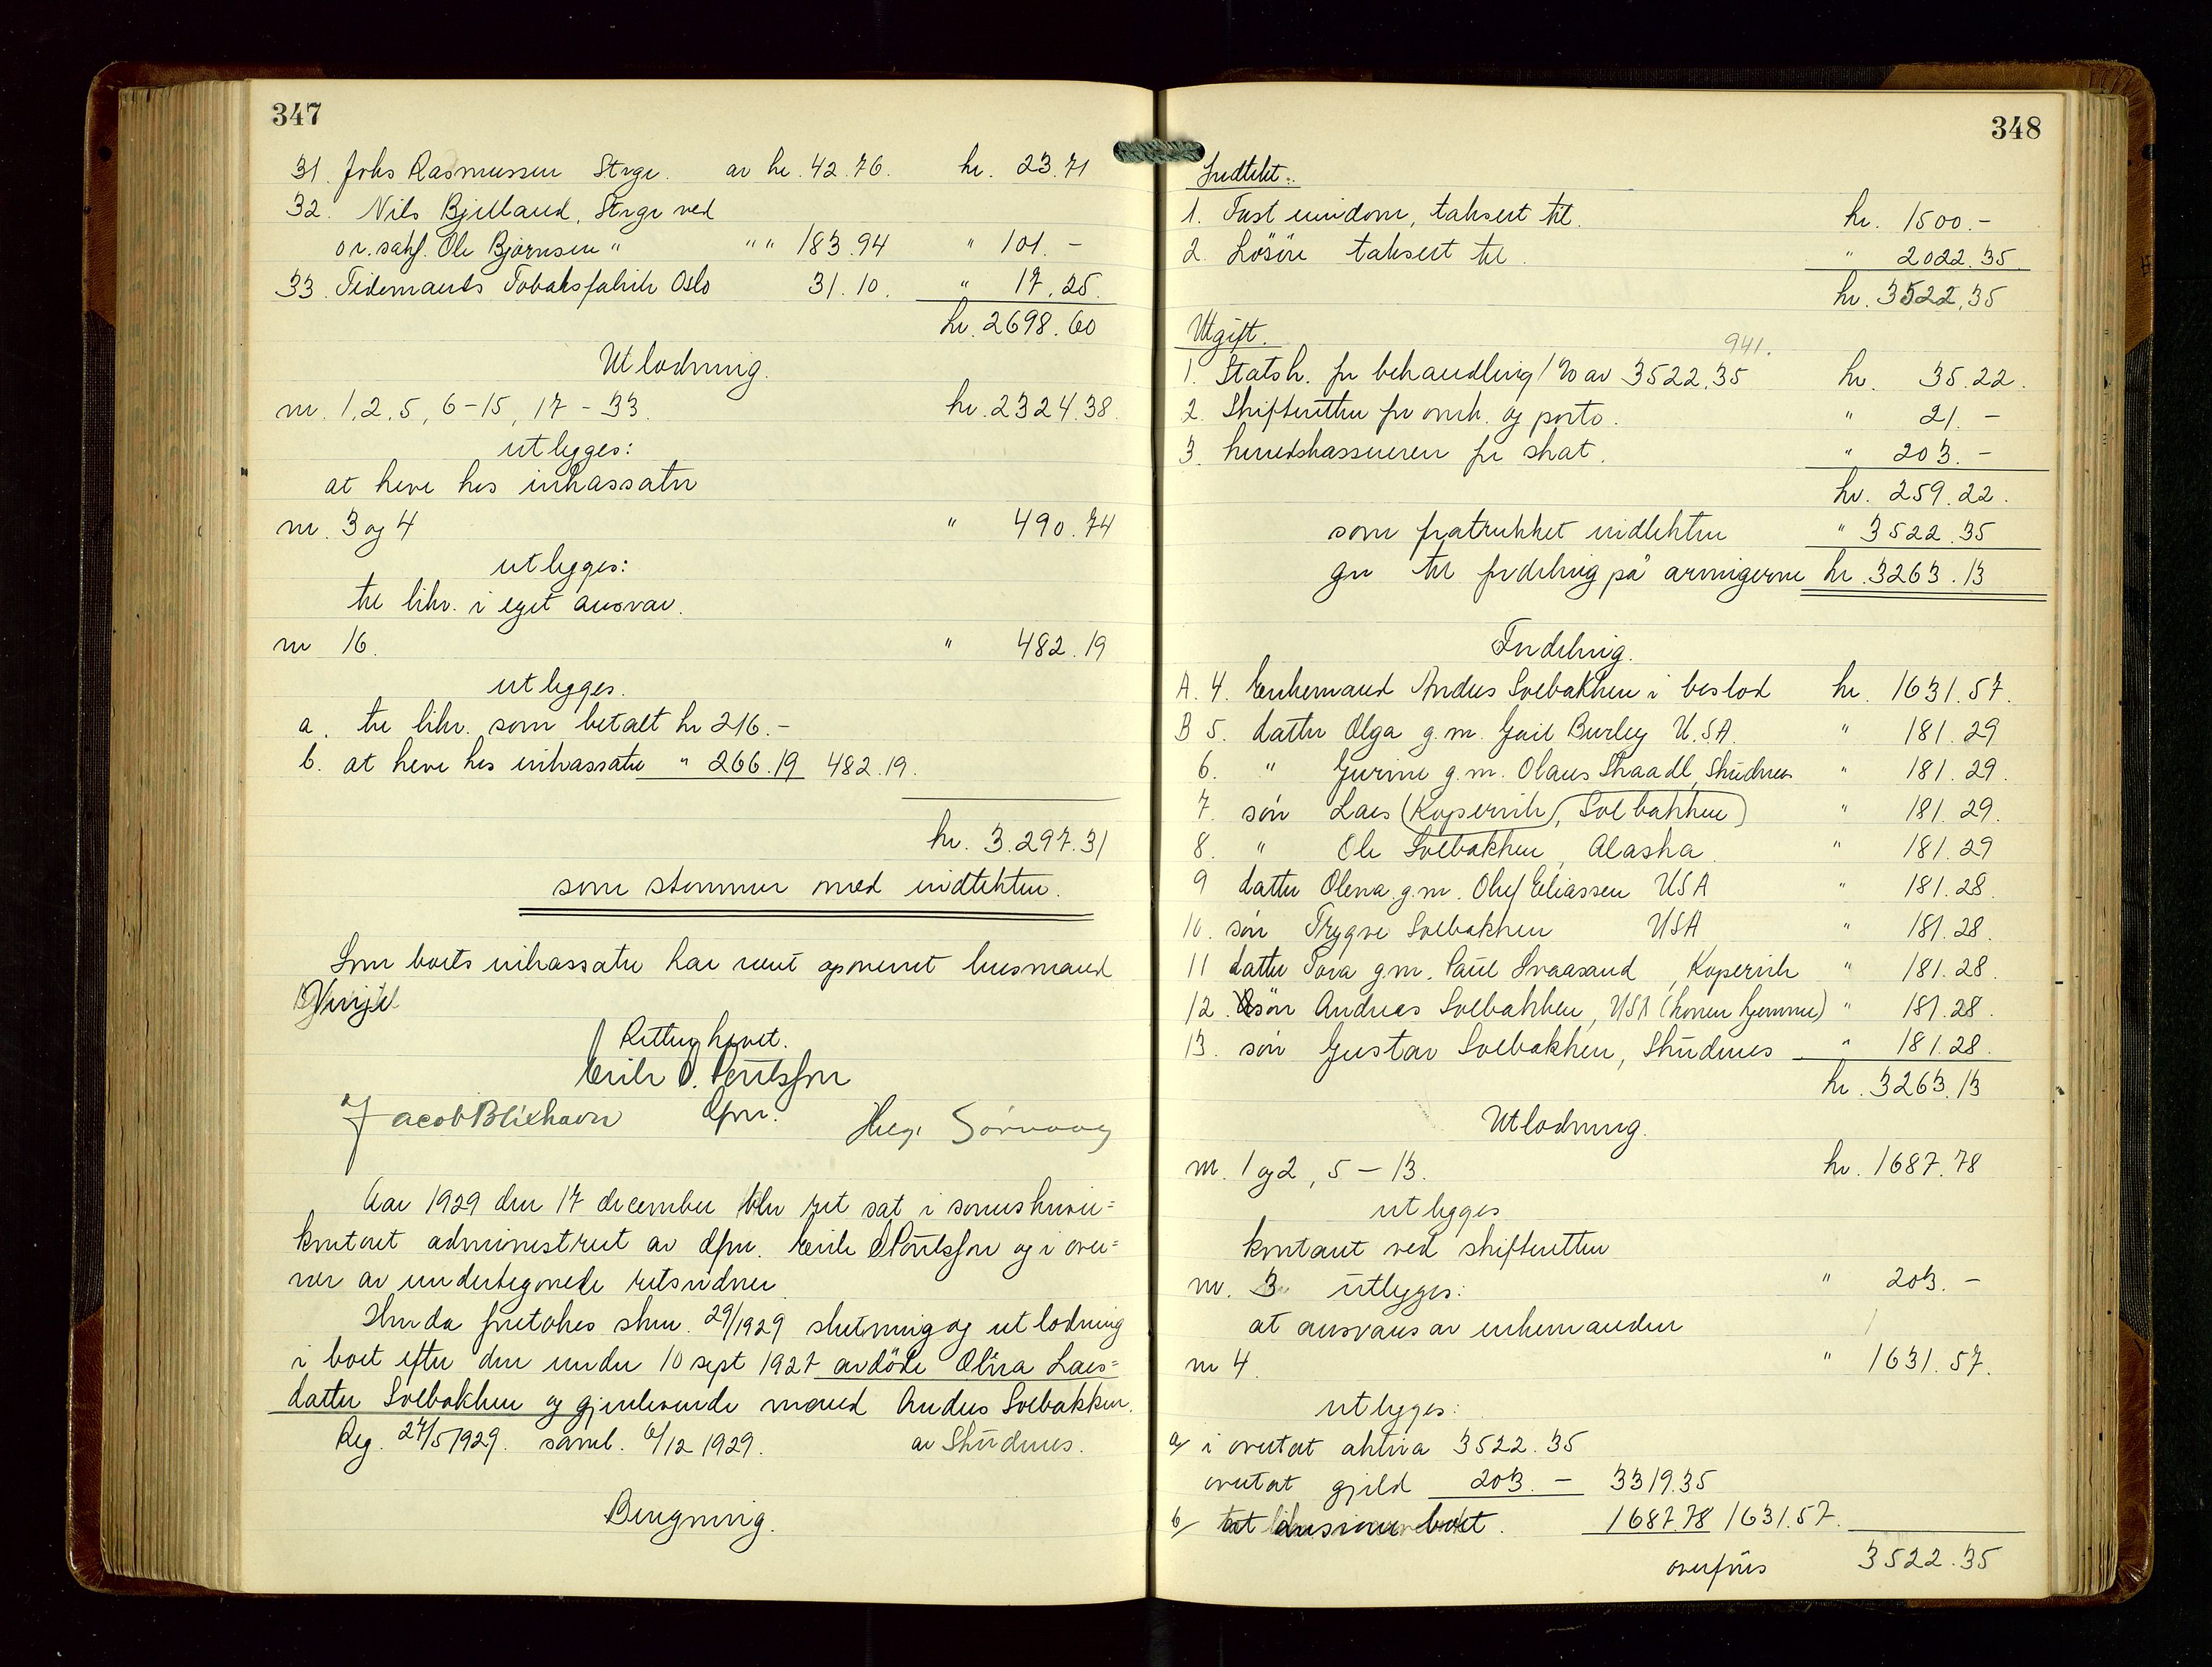 347
31. Johs Rasmussen Strgr. av kr. 42.76. kr. 23.71
32. Nils Bjelland, Strgr ved
o.r.sakf. Ole Bjørnsen " " " 183.94 " 101.-
33. Tidemands Tobaksfabrik Oslo 31.10. " 17.25.
kr. 2698.60
Utlodning.
nr. 1, 2, 5, 6-15, 17-33. kr. 2324.38.
utlegges:
at heve hos inkassator
nr. 3 og 4 " 490.74
utlegges:
til likv. i eget ansvar.
nr 16. " 482.19
utlegges.
a. til likv. som betalt kr 216.-
b. at heve hos inkassator " 266.19 482.19.
kr. 3.297.31
som stemmer med indtekten.
Som boets inkassator har været opnevnt lensmand
Vinje
Retten hevet.
Eirik O. Poulsson
dfm.
Jacob Blikhavn Helge Sørvaag
Aar 1929 den 17 december blev ret sat i sorenskriver=
kontoret administrert av dfm. Eirik O Poulsson og i over=
vær av undertegnede retsvidner.
Hvor da foretokes skm. 29/1929 slutning og utlodning
i boet efter den under 10 sept 1927 avdöde Olina Lars=
datter Solbakken og gjenlevende mand Andres Solbakken.
Reg. 27/5 1929. saml. 6/12 1929. av Skudnes.
Beregning.
348
Indtekt:
1. Fast eiendom, taksert til. kr. 1500.-
2. Lösöre taksert til. " 2022.35.
kr. 3522,35
Utgift.
941.
1. Statsk. for behandling 1% av 3522,35 kr. 35.22.
2. Skifteretten for omk. og porto. " 21.-
3. herredskassereren for skat. " 203.-
kr. 259.22.
som fratrukket indtekten " 3522.35
gir til fordeling på arvingerne kr. 3263.13
Fordeling.
A. 4. Enkemand Andres Solbakken i boslod kr. 1631.57.
B 5. datter Olga g.m. Gail Burley U.S.A. " 181.29
6. " Gurine g.m. Olaus Skaadl, Skudnes " 181.29.
7. sön Lars (Kopervik, Solbakken) " 181.29.
8. " Ole Solbakken, Alaska. " 181.29
9 datter Olena g.m. Oluf Eliassen USA " 181.28.
10. sön Trygve Solbakken USA " 181.28.
11 datter Tora g.m. Paul Svaasand, Kopervik " 181.28.
12. sön Andreas Solbakken, USA (konen hjemme) " 181.28.
13. sön Gustav Solbakken, Skudnes " 181.28.
kr. 3263.13
Utlodning.
nr. 1 og 2, 5-13. kr. 1687.78
utlegges
kontant ved skifteretten
nr. 3 utlegges: " 203.-
at ansvares av enkemanden
nr 4. " 1631.57.
utlegges:
a/ i overtat aktiva 3522.35
overtat gjeld 203.- 3319.35
b/ boet. 1687.78 1631.57.
overføres 3522.35